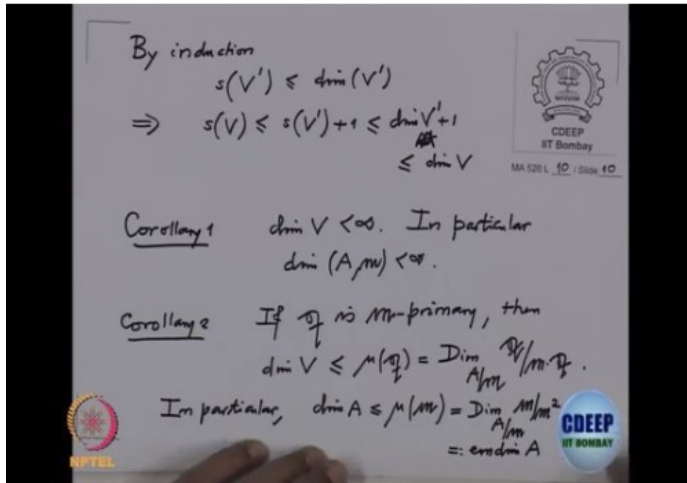 By induction
s(V') ≤ dim(V')
⇒ s(V) ≤ s(V')+1 ≤ dim V'+1
≤ dim V
CDEEP
IIT Bombay
MA 526 L 10 / Slide 10
Corollary 1 dim V < ∞. In particular
dim (A, m) < ∞.
Corollary 2 If q is m-primary, then
dim V ≤ μ(q) = Dim_{A/m} q/m·q.
In particular, dim A ≤ μ(m) = Dim_{A/m} m/m²
=: emdim A
NPTEL
CDEEP
IIT BOMBAY